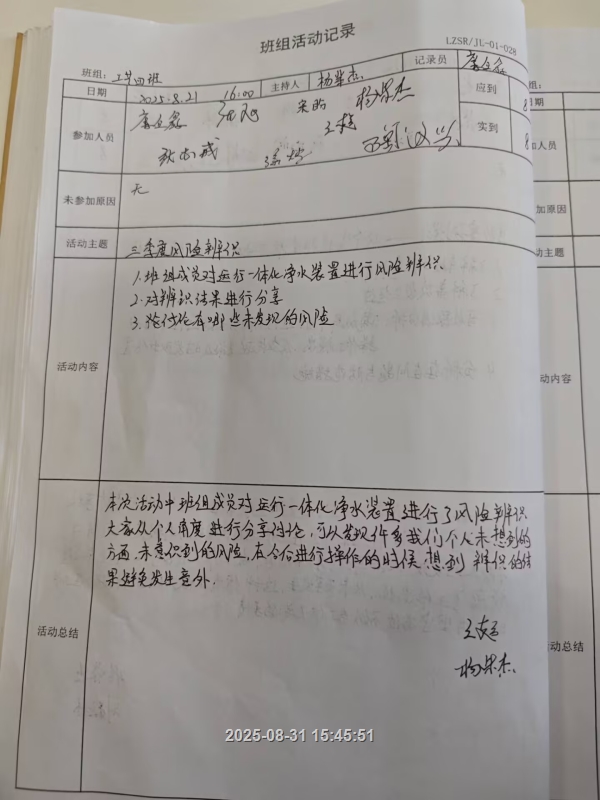 班组活动记录
LZSR/JL-01-028
班组:
日期 2025.8.21 16:00 主持人 记录员
应到 8
参加人员
王超
实到 8
未参加原因 无
活动主题 三季度风险辨识
活动内容
1.班组成员对运行一体化净水装置进行风险辨识
2.对辨识结果进行分享
3.讨论有哪些未发现的风险
活动总结
本次活动中班组成员对运行一体化净水装置进行了风险辨识
大家从个人角度进行分享讨论,可以发现许多我们个人未想到的
方面,未意识到的风险,在今后进行操作的时候想到辨识的结
果避免发生意外.
王超
2025-08-31 15:45:51
组:
日期
加人员
加原因
动主题
动内容
动总结